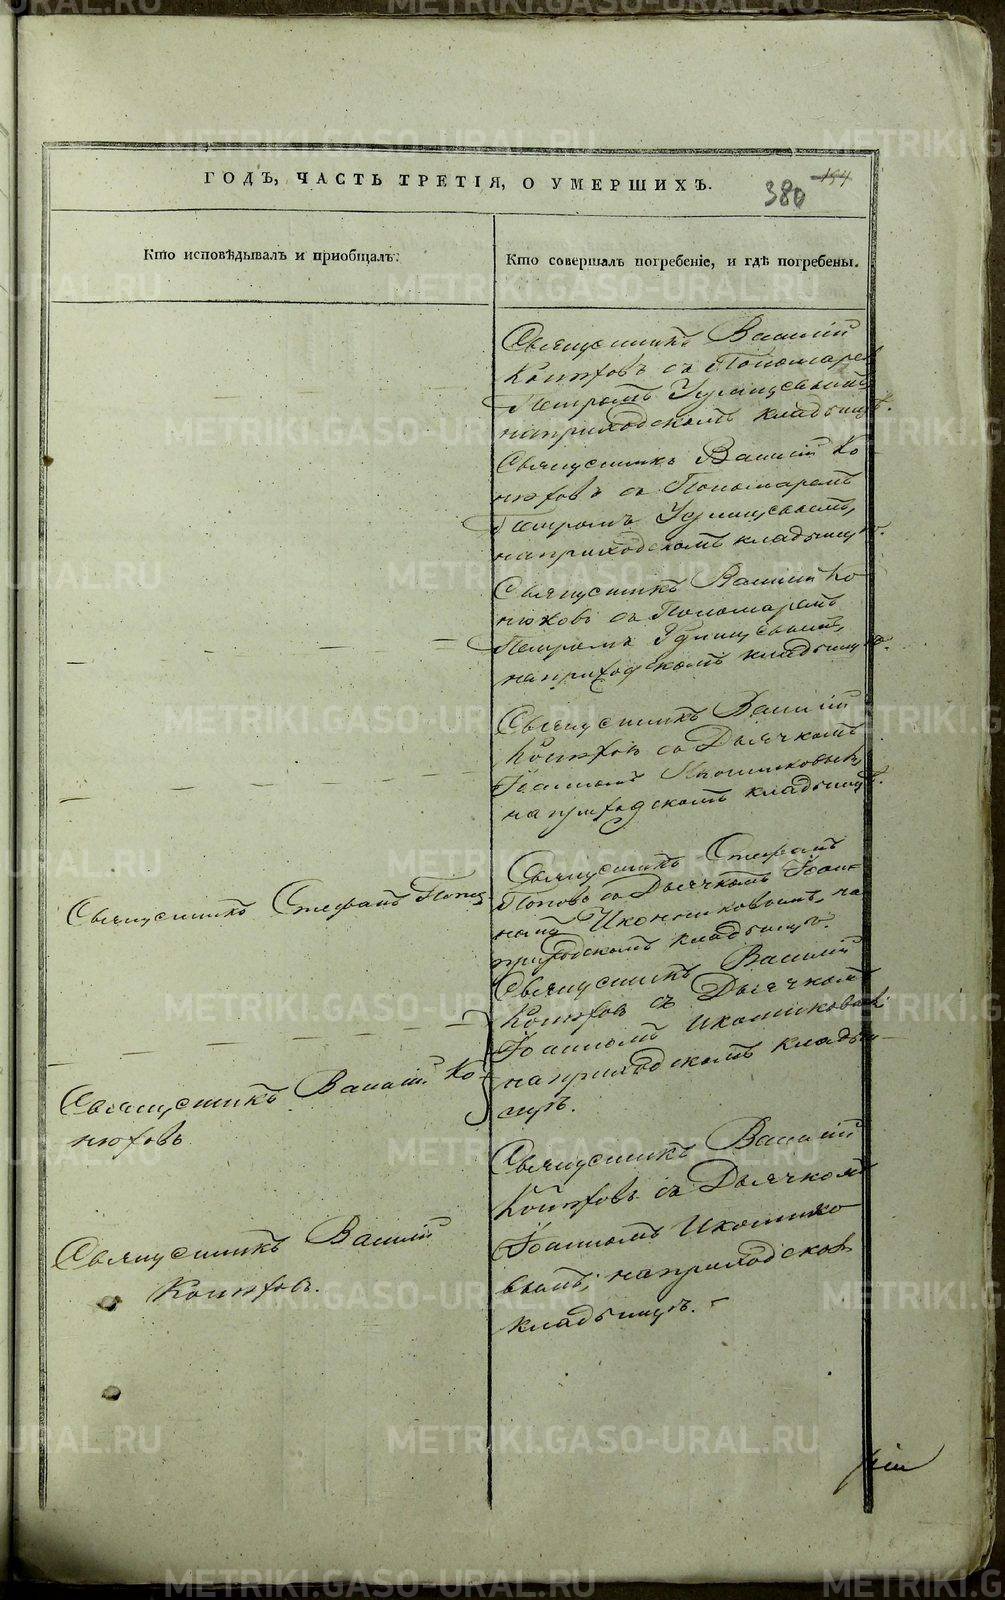 ГОДЪ, ЧАСТЬ ТРЕТІЯ, О УМЕРШИХЪ.
380
Кто исповѣдывалъ и приобщалъ.
Кто совершалъ погребеніе, и гдѣ погребены.
Священникъ Василій
Конюховъ съ Пономарем
Петромъ
на приходскомъ кладбищѣ.
Священникъ Василій Ко-
нюховъ съ Пономаремъ
Петромъ
на приходскомъ кладбищѣ.
Священникъ Василій Ко-
нюховъ съ Пономаремъ
Петромъ
на приходскомъ кладбищѣ.
Священникъ Василій
Конюховъ съ Дьячкомъ
Іоанномъ Иконниковымъ
на приходскомъ кладбищѣ.
Священникъ Стефанъ Попов
Священникъ Стефанъ
Поповъ съ Дьячкомъ Іоан-
номъ Иконниковымъ, на
приходскомъ кладбищѣ.
Священникъ Василій Ко-
нюховъ
Священникъ Василій
Конюховъ съ Дьячкомъ
Іоанномъ Иконниковым
на приходскомъ кладби-
щѣ.
Священникъ Василій
Конюховъ.
Священникъ Василій
Конюховъ съ Дьячкомъ
Іоанномъ Иконнико-
вымъ, на приходском
кладбищѣ.
METRIKI.GASO-URAL.RU